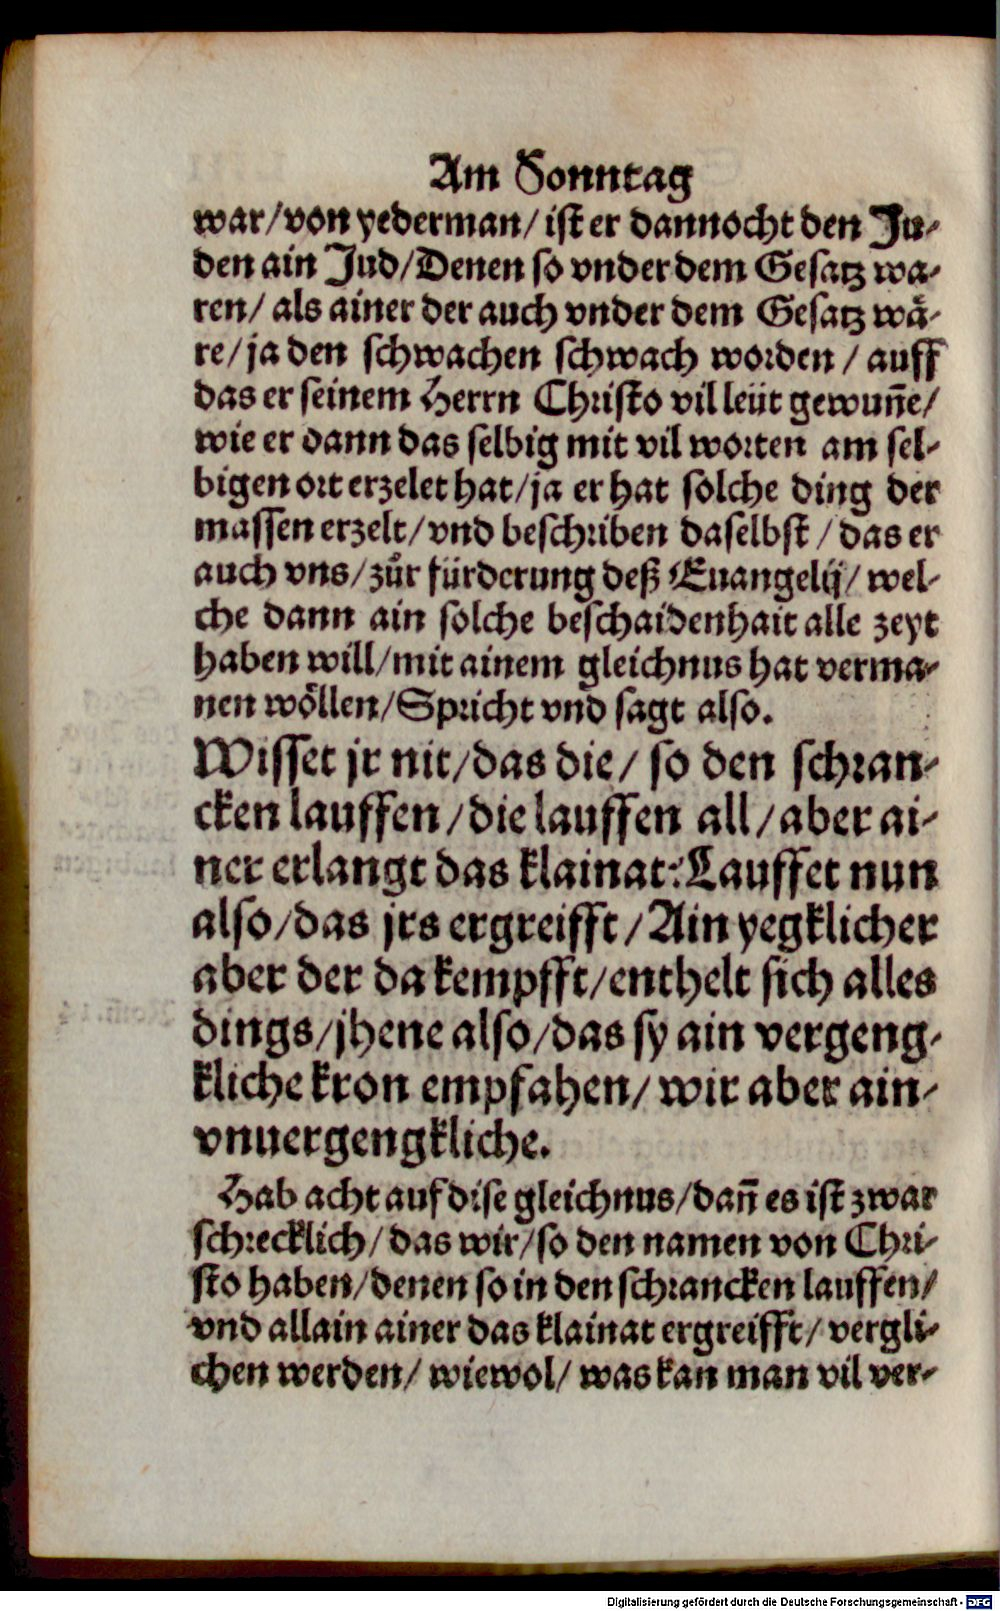 Am Sonntag
war/von yederman/ist er dannocht den Ju-
den ain Jud/Denen so vnder dem Gesatz wa-
ren/als ainer der auch vnder dem Gesatz waͤ-
re/ja den schwachen schwach worden/auff
das er seinem Herrn Christo vil leüt gewun̄e/
wie er dann das selbig mit vil worten am sel-
bigen ort erzelet hat/ja er hat solche ding der
massen erzelt/vnd beschriben daselbst/das er
auch vns/zuͦr fürderung deß Euangelij/wel-
che dann ain solche beschaidenhait alle zeyt
haben will/mit ainem gleichnus hat verma-
nen woͤllen/Spricht vnd sagt also.
Wisset jr nit/das die/so den schran-
cken lauffen/die lauffen all/aber ai-
ner erlangt das klainat: Lauffet nun
also/das jrs ergreifft/Ain yegklicher
aber der da kempfft/enthelt sich alles
dings/jhene also/das sy ain vergeng-
kliche kron empfahen/wir aber ain-
vnuergengkliche.
Hab acht auf dise gleichnus/dan̄ es ist zwar
schrecklich/das wir/so den namen von Chri-
sto haben/denen so in den schrancken lauffen/
vnd allain ainer das klainat ergreifft/vergli-
chen werden/wiewol/was kan man vil ver-
Digitalisierung gefördert durch die Deutsche Forschungsgemeinschaft - DFG